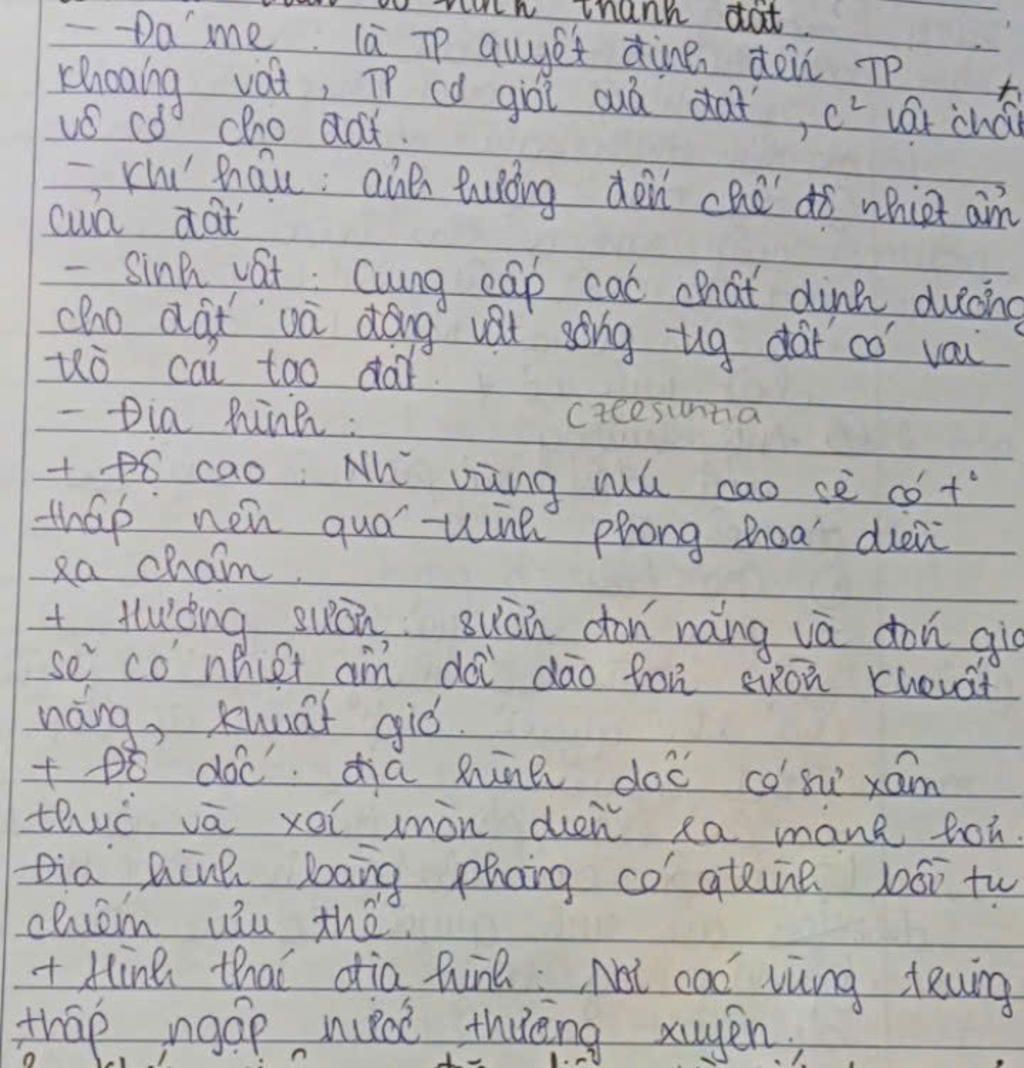 hình thành đất.
- Đá mẹ: là TP quyết định đến TP
khoáng vật, TP cơ giới của đất, c² vật chất
vô cơ cho đất.
- Khí hậu: ảnh hưởng đến chế độ nhiệt ẩm
của đất
- Sinh vật: Cung cấp các chất dinh dưỡng
cho đất và động vật sống trg đất có vai
trò cải tạo đất.
- Địa hình:
+ Độ cao: Nh~ vùng núi cao sẽ có t°
thấp nên quá trình phong hoá diễn
ra chậm.
+ Hướng sườn: sườn đón nắng và đón gió
sẽ có nhiệt ẩm dồi dào hơn sườn khuất
nắng, khuất gió.
+ Độ dốc: địa hình dốc có sự xâm
thực và xói mòn diễn ra mạnh hơn.
Địa hình bằng phẳng có qtrình bồi tụ
chiếm ưu thế.
+ Hình thái địa hình: Nơi các vùng trũng
thấp ngập nước thường xuyên.